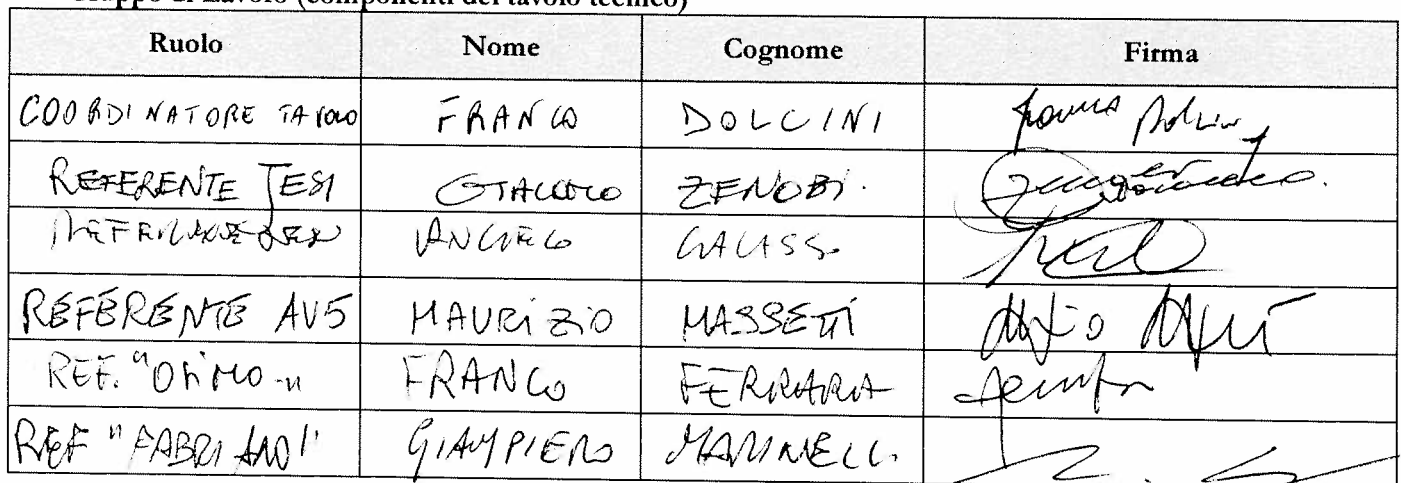 Gruppo di Lavoro (componenti del tavolo tecnico)
Ruolo Nome Cognome Firma
COORDINATORE TAVOLO FRANCO DOLCINI
REFERENTE JESI GIACOMO ZENOBI.
ANGELO
REFERENTE AV5 MAURIZIO MASSETTI
REF. "OSIMO" FRANCO FERRARA
REF "FABRIANO" GIAMPIERO MARINELLI